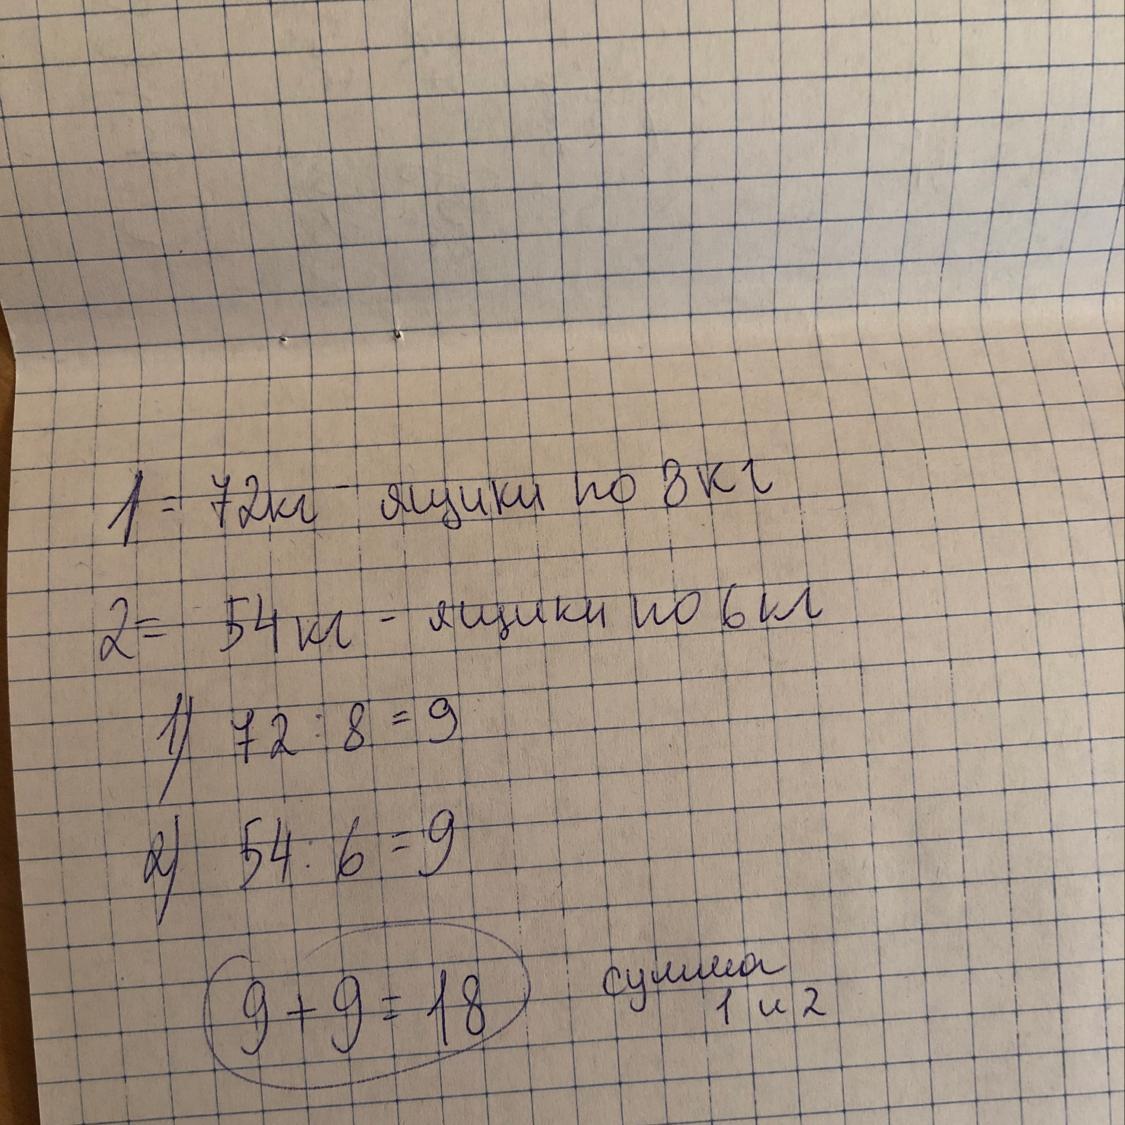 1 = 72кг - ящики по 8кг
2 = 54кг - ящики по 6кг
1) 72 : 8 = 9
2) 54 : 6 = 9
9 + 9 = 18
сумма
1 и 2